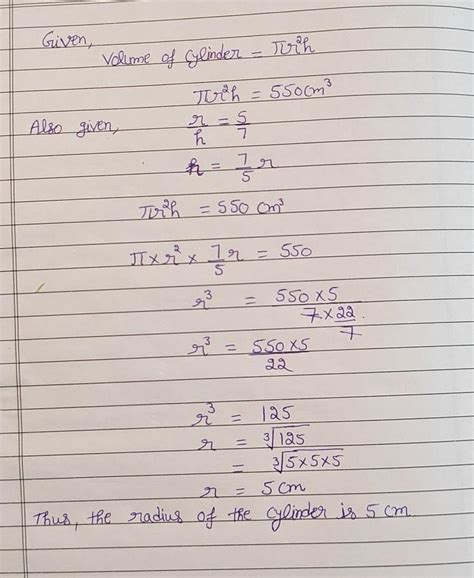 Given,
Volume of cylinder = πr²h
πr²h = 550cm³
Also given, r/h = 5/7
h = 7/5 r
πr²h = 550 cm³
π × r² × 7/5 r = 550
r³ = 550×5 / 7 × 22/7
r³ = 550×5 / 22
r³ = 125
r = ³√125
= ³√5×5×5
r = 5cm
Thus, the radius of the cylinder is 5 cm